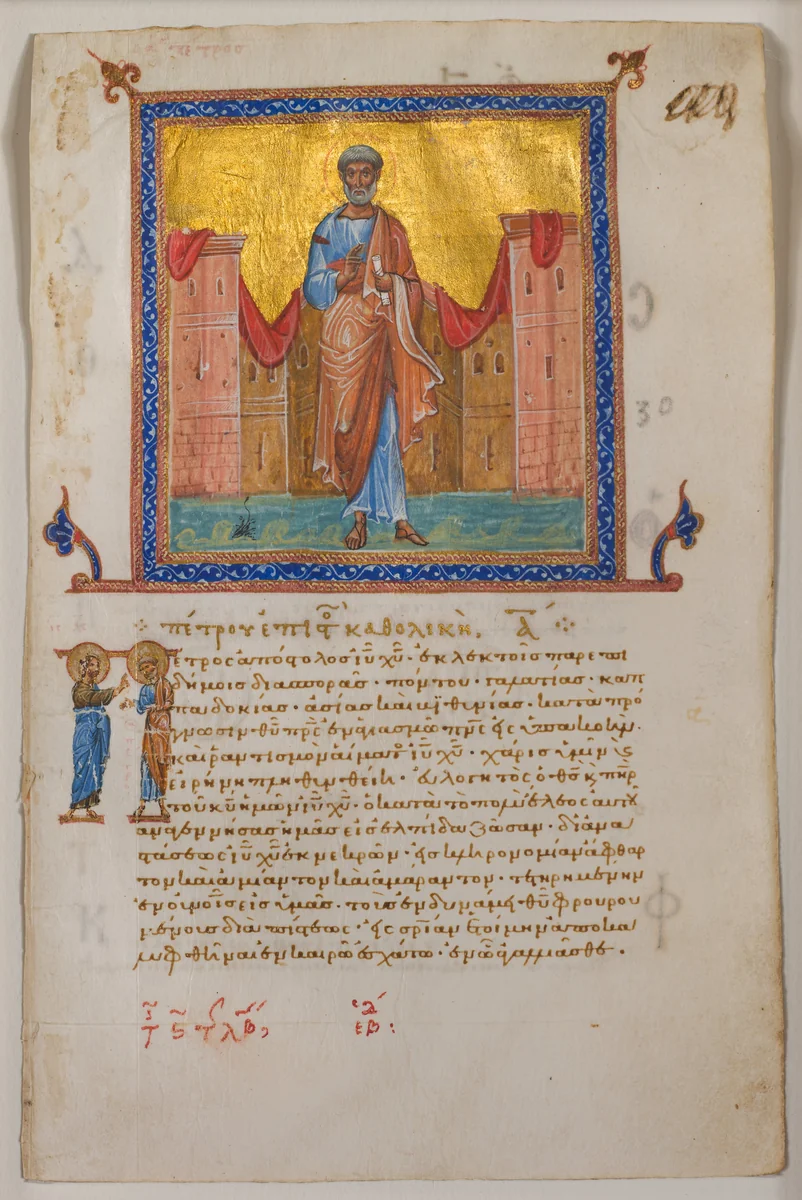 πέτρου ἐπιστο καθολικὴ, Α
έτρος ἀπόστολος ἰῦ χῦ· ἐκλεκτοῖς παρεπι
δήμοις διασπορᾶς· πόντου· γαλατίας· καπ
παδοκίας· ἀσίας καὶ βϊθυνίας· κατὰ πρό
γνωσιν θῦ πρς ἐν ἁγιασμῶ πνς εἰς ὑπακοὴν·
καὶ ῥαντισμὸν αἵματος ἰῦ χῦ· χάρις ὑμῖν ϗ
εἰρήνη πληθυνθείη· εὐλογητὸς ὁ θς ϗ πηρ
τοῦ κῦ ἡμῶν ἰῦ χῦ· ὁ κατὰ τὸ πολὺ ἔλεος αυτοῦ
αναγεννήσας ἡμᾶς εἰς ἐλπίδα ζῶσαν· δι ἀνα
στάσεως ἰῦ χῦ ἐκ νεκρῶν· εἰς κληρονομίαν ἄφθαρ
τον καὶ ἀμίαντον καὶ ἀμάραντον· τετηρημένην
ἐν οὐνοῖς εἰς ὑμᾶς· τοὺς ἐν δυνάμει θῦ φρουρου
μένους διὰ πίστεως· εἰς σρίαν ἑτοίμην ἀποκα
λυφθῆναι ἐν καιρῶ ἐσχάτω· ἐν ᾧ ἀγαλλιᾶσθε.
30